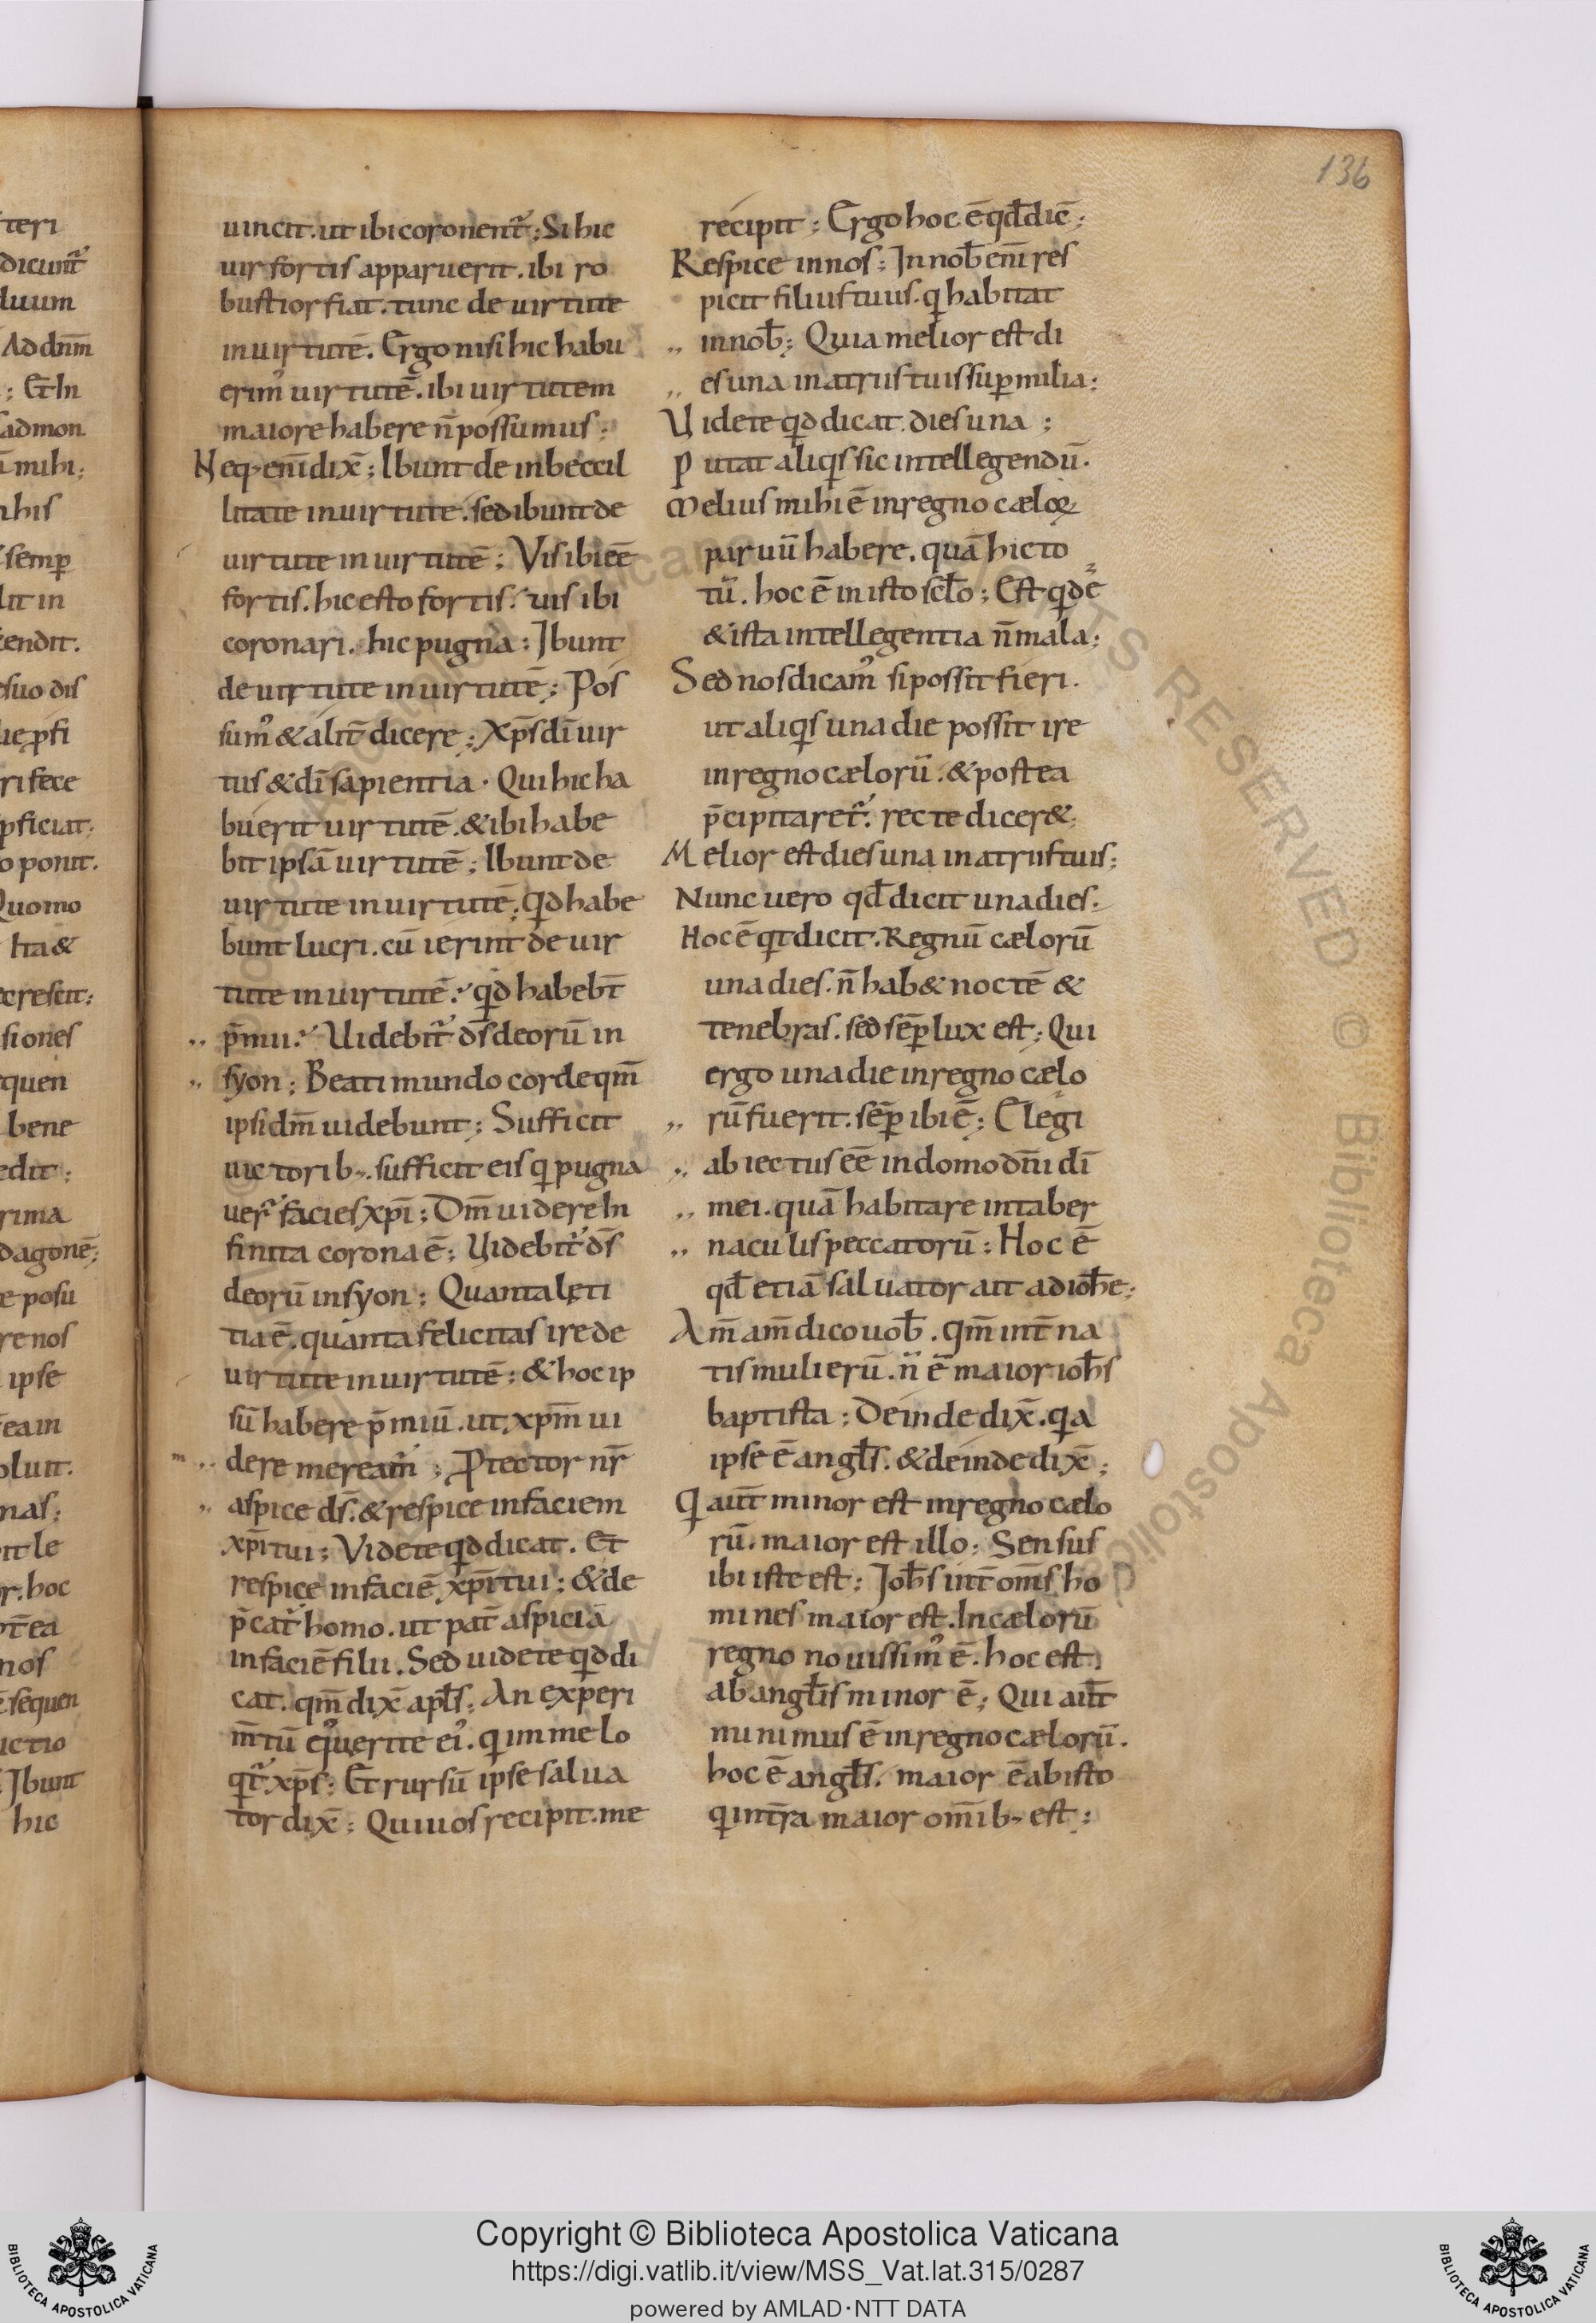 136
uincit. ut ibi coronent᷑; Si hic
uir fortis apparuerit. ibi ro
bustior fiat. tunc de uirtute
in uirtutē. Ergo nisi hic habu
erim᷒ uirtutē. ibi uirtutem
maiore habere n̄ possumus;
Neq; eni᷒ dix̄; Ibunt de inbeccil
litate in uirtute. sed ibunt de
uirtute in uirtutē; Vis ibi eē
fortis. hic esto fortis. uis ibi
coronari. hic pugna; Ibunt
de uirtute in uirtutē; Pos
sum᷒ & alit̄ dicere; Xp̄s dī uir
tus & dī sapientia. Qui hic ha
buerit uirtutē. & ibi habe
bit ipsā uirtutē; Ibunt de
uirtute in uirtutē; Qd habe
bunt lucri. cū ierint de uir
tute in uirtutē. qd habebt̄
p̄mii. Uidebit᷑ d̄s deorū in
syon; Beati mundo corde qm̄
ipsi dm̄ uidebunt; Sufficit
uictorib;. sufficit eis q pugna
uer᷑ facies xp̄i; Dm̄ uidere In
finita corona ē; Uidebit᷑ d̄s
deorū in syon; Quanta lęti
tia ē. quanta felicitas ire de
uirtute in uirtutē; & hoc ip
sū habere p̄miū. ut xpm̄ ui
dere meream᷑; Ptector nr̄
aspice d̄s. & respice in faciem
xp̄i tui; Videte qd dicat. Et
respice in faciē xp̄i tui; & de
p̄cat᷑ homo. ut pat̄ aspiciā
in faciē filii. Sed uidete qd di
cat. qm̄ dix̄ apl̄s; An experi
m̄tū quęrite ei᷒. q in me lo
qt᷑ xp̄s; Et rursū ipse salua
tor dix̄; Qui uos recipit. me
recipit; Ergo hoc ē qd̄ dic̄;
Respice in nos; In nob̄ eni᷒ res
picit filius tuus. q habitat
in nob̄; Quia melior est di
es una in atriis tuis sup milia;
Uidete qd dicat. dies una;
Putat aliqs sic intellegendū.
Melius mihi ē in regno cæloꝝ
paruū habere. quā hic to
tū. hoc ē in isto scl̄o; Est qdē
& ista intellegentia n̄ mala;
Sed nos dicam᷒ si possit fieri.
ut aliqs una die possit ire
in regno cælorū. & postea
p̄cipitaret᷑. recte dicer&;
Melior est dies una in atriis tuis;
Nunc uero qd̄ dicit una dies.
Hoc ē qt dicit. Regnū cælorū
una dies. n̄ hab& noctē &
tenebras. sed sēp lux est; Qui
ergo una die in regno cælo
rū fuerit. sēp ibi ē; Elegi
abiectus eē in domo dn̄i dī
mei. quā habitare in taber
naculis peccatorū; Hoc ē
qd̄ etiā saluator ait ad ioh̄e;
Am̄ am̄ dico uob̄. qm̄ int̄ na
tis mulierū. n̄ ē maior ioh̄s
baptista; Deinde dix̄. qa
ipse ē angl̄s. & deinde dix̄;
Q aut̄ minor est in regno cælo
rū. maior est illo; Sensus
ibi iste est; Joh̄s int̄ om̄s ho
mines maior est. In cælorū
regno nouissim᷒ ē. hoc est.
ab angl̄is minor ē; Qui aut̄
minimus ē in regno cælorū.
hoc ē angl̄s. maior ē ab isto
q in tr̄a maior om̄ib; est;
Copyright © Biblioteca Apostolica Vaticana
https://digi.vatlib.it/view/MSS_Vat.lat.315/0287
powered by AMLAD·NTT DATA